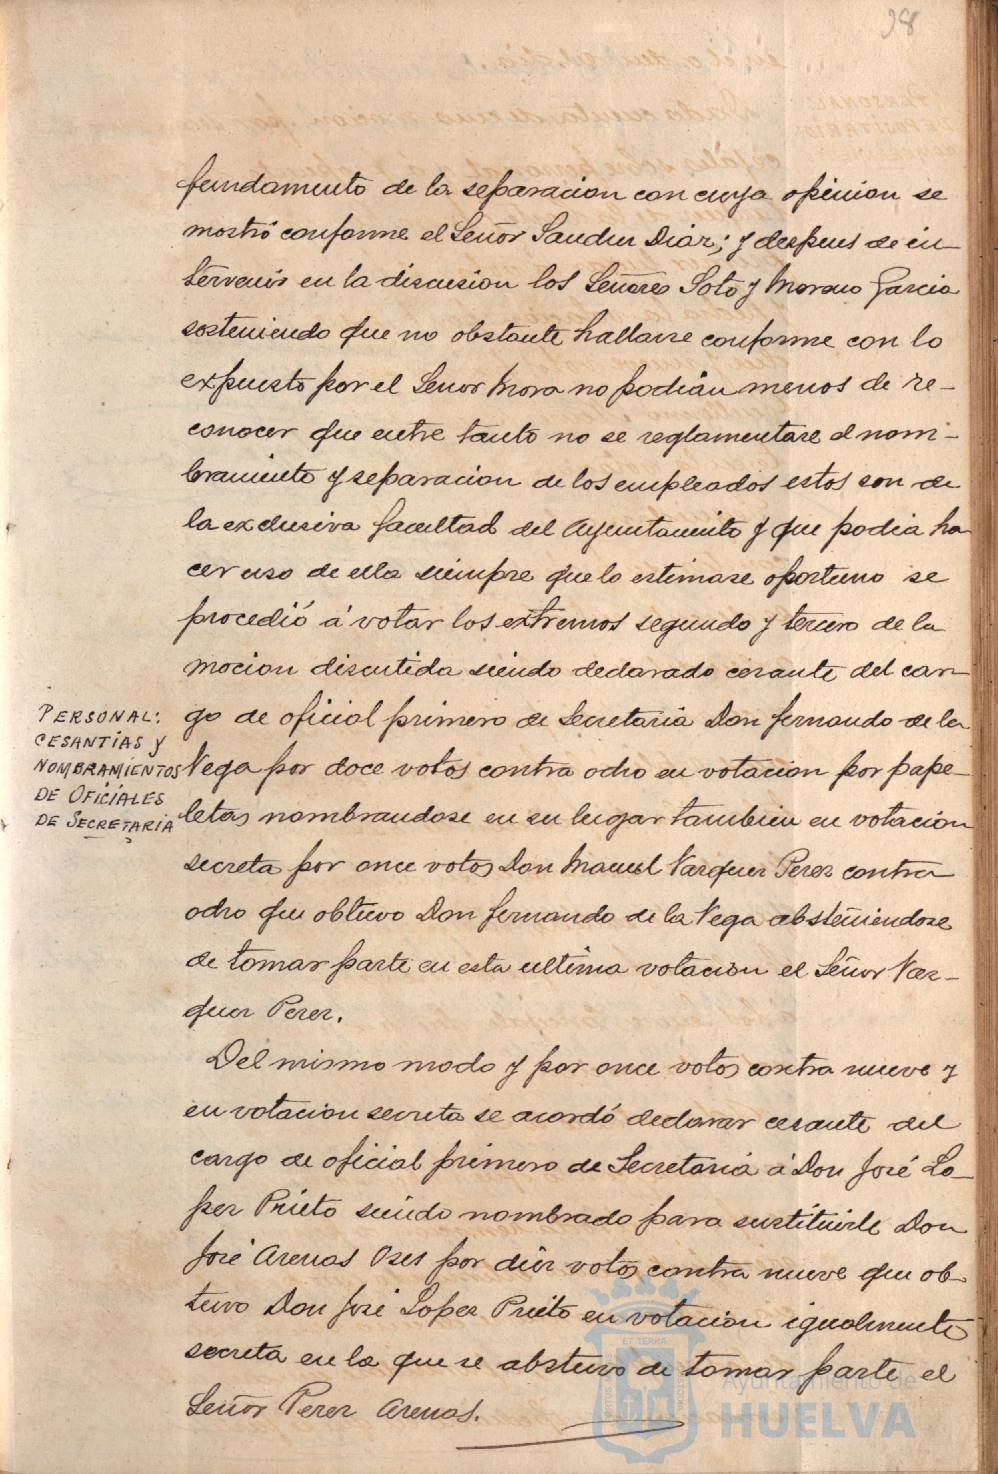 98
fundamento de la separacion con cuya opinion se
mostró conforme el Señor Sanchez Diaz; y despues de in-
tervenir en la discusion los Señores Soto y Moreno Garcia
sosteniendo que no obstante hallarse conforme con lo
expuesto por el Señor Mora no podian menos de re-
conocer que entre tanto no se reglamentase el nom-
bramiento y separacion de los empleados estos son de
la exclusiva facultad del Ayuntamiento y que podia ha
cer uso de ella siempre que lo estimase oportuno se
procedió á votar los extremos segundo y tercero de la
mocion discutida siendo declarado cesante del car-
PERSONAL:
CESANTÍAS Y
NOMBRAMIENTOS
DE OFICIALES
DE SECRETARIA
go de oficial primero de Secretaria Don Fernando de la
Vega por doce votos contra ocho en votacion por pape-
letas nombrandose en su lugar tambien en votacion
secreta por once votos Don Manuel Vazquez Perez contra
ocho que obtuvo Don Fernando de la Vega absteniendose
de tomar parte en esta ultima votacion el Señor Vaz-
quez Perez.
Del mismo modo y por once votos contra nueve y
en votacion secreta se acordó declarar cesante del
cargo de oficial primero de Secretaria á Don José Lo-
pez Prieto siendo nombrado para sustituirle Don
José Arenas Oses por diez votos contra nueve que ob-
tuvo Don José Lopez Prieto en votacion igualmente
secreta en la que se abstuvo de tomar parte el
Señor Perez Arenas.
ET TERRA
Ayuntamiento de
HUELVA